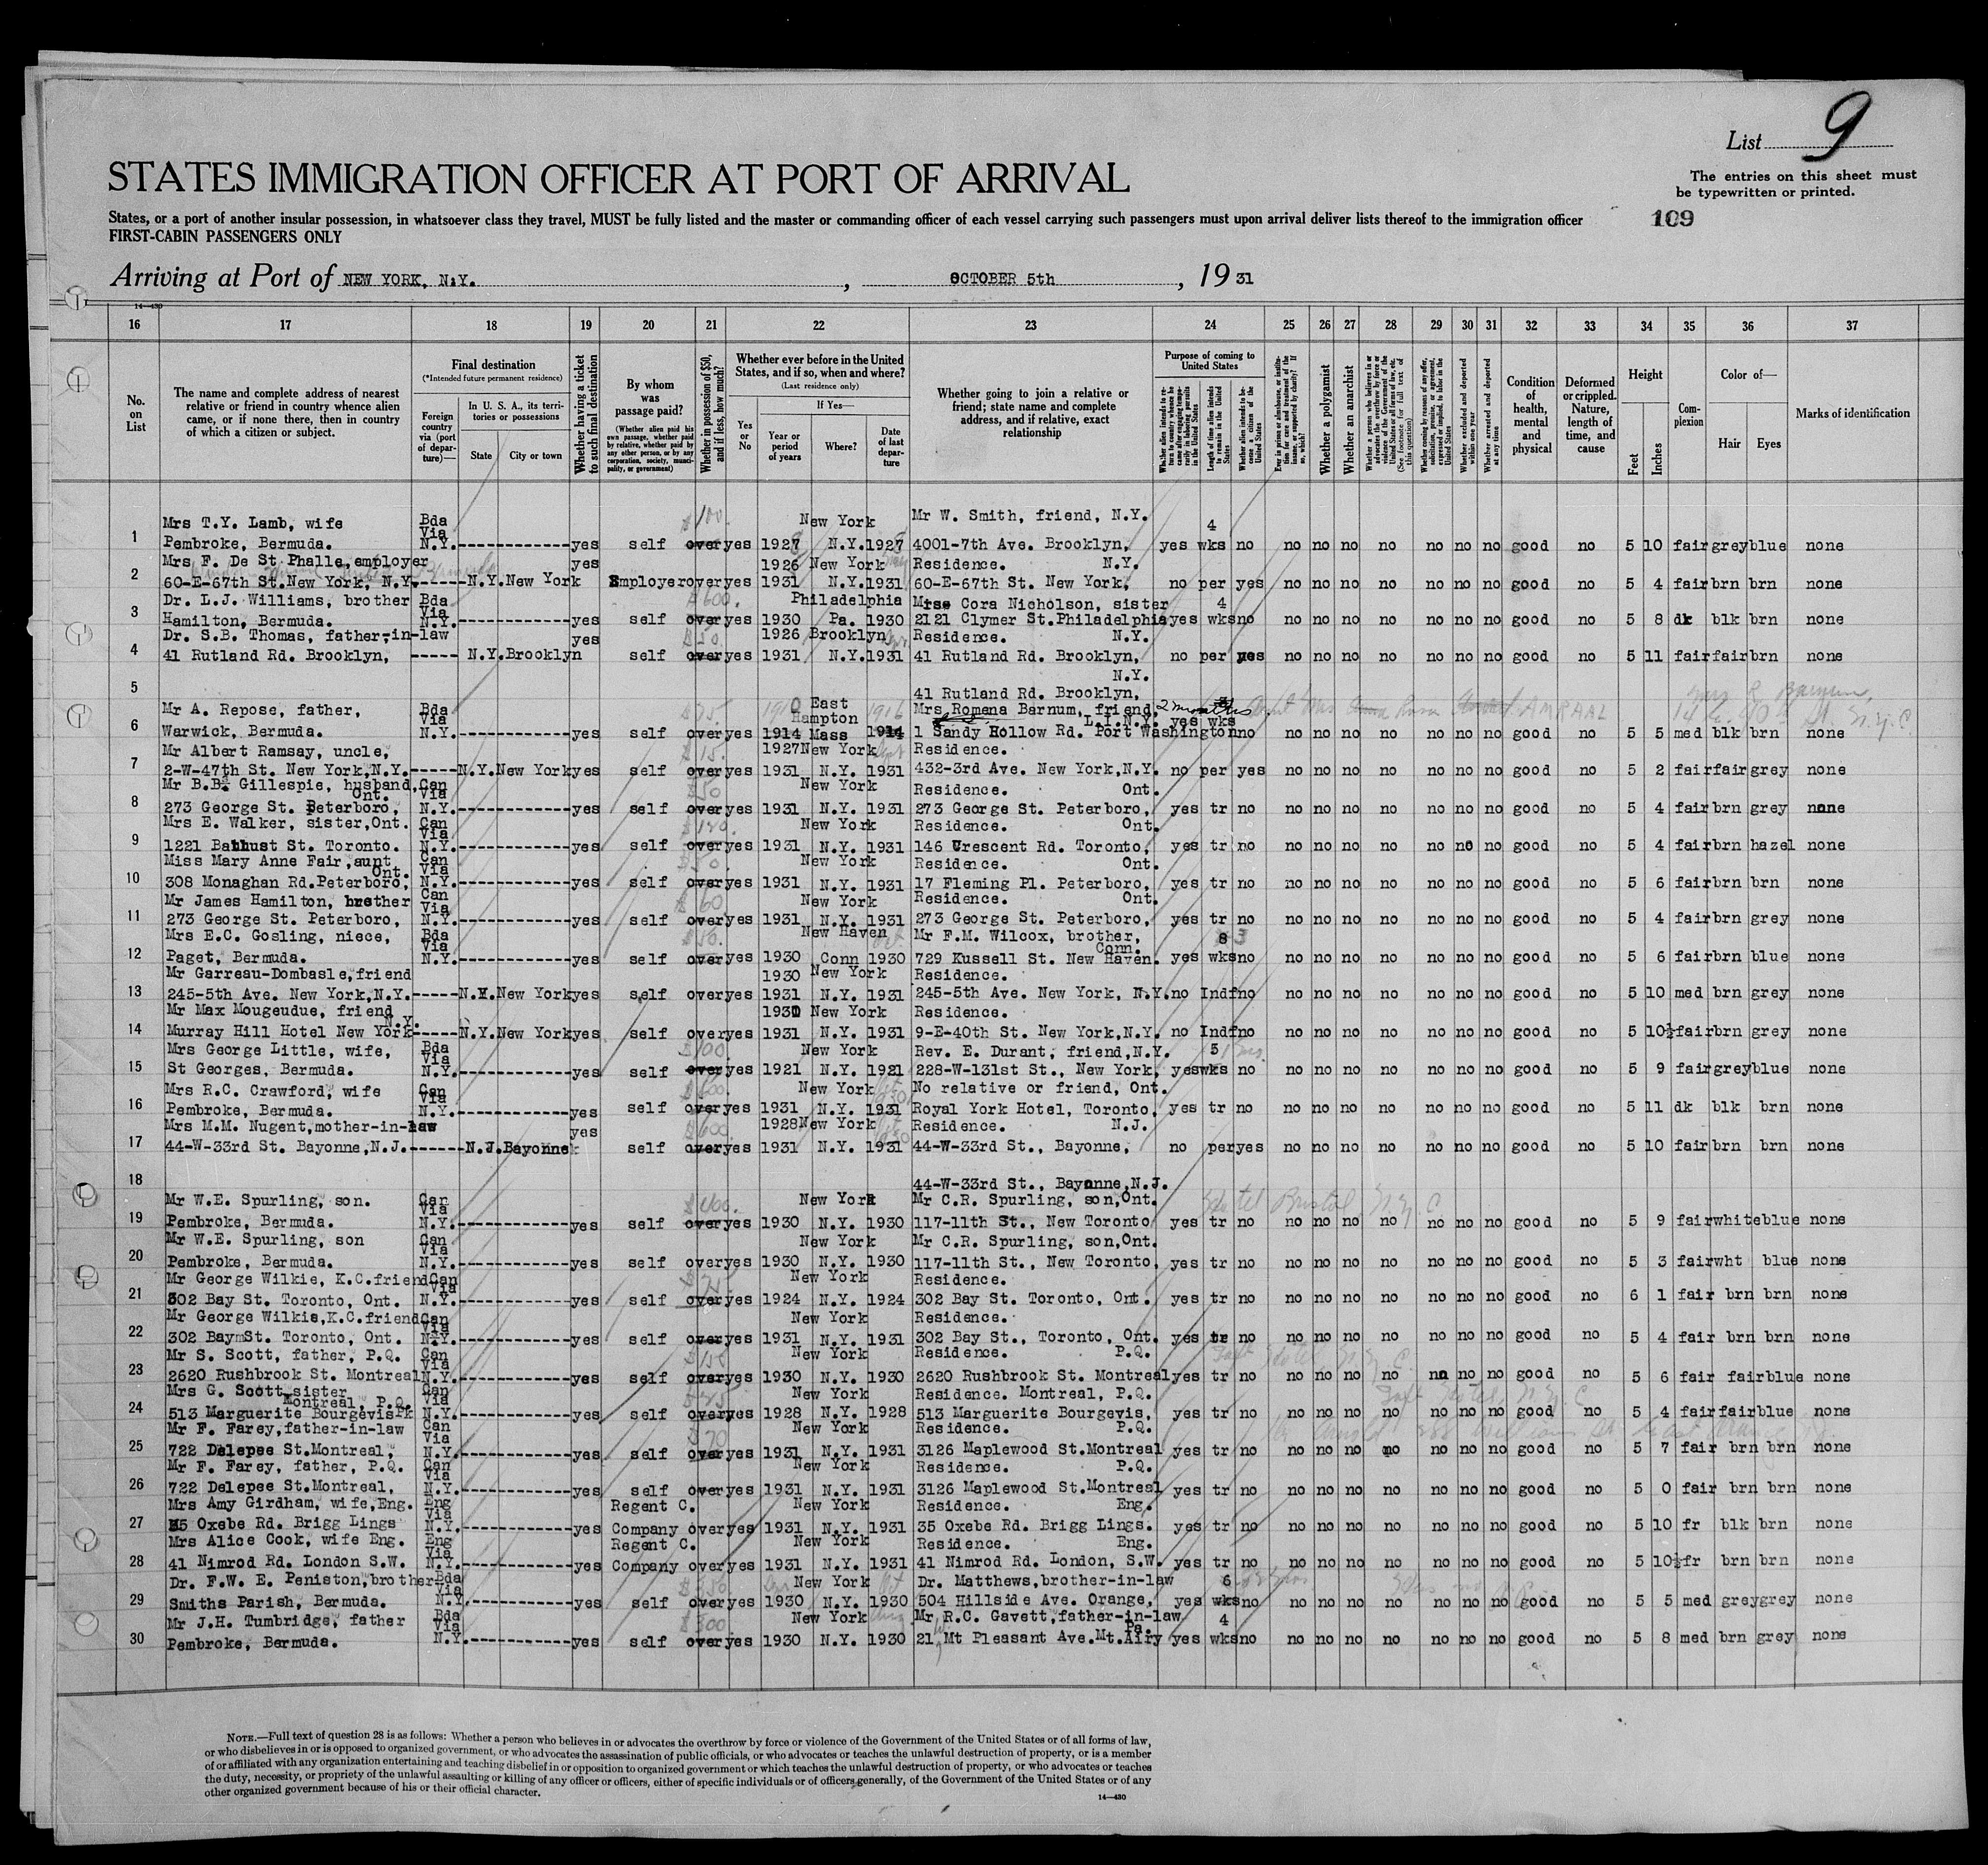 List 9
STATES IMMIGRATION OFFICER AT PORT OF ARRIVAL
The entries on this sheet must
be typewritten or printed.
States, or a port of another insular possession, in whatsoever class they travel, MUST be fully listed and the master or commanding officer of each vessel carrying such passengers must upon arrival deliver lists thereof to the immigration officer
109
FIRST-CABIN PASSENGERS ONLY
Arriving at Port of NEW YORK, N.Y. , OCTOBER 5th , 19 31
14—430
16 17 18 19 20 21 22 23 24 25 26 27 28 29 30 31 32 33 34 35 36 37
No. on List
The name and complete address of nearest relative or friend in country whence alien came, or if none there, then in country of which a citizen or subject.
Final destination
(*Intended future permanent residence)
Foreign country via (port of departure)—
In U. S. A., its territories or possessions
State City or town
Whether having a ticket to such final destination
By whom was passage paid?
(Whether alien paid his own passage, whether paid by relative, whether paid by any other person, or by any corporation, society, municipality, or government)
Whether in possession of $50, and if less, how much?
Whether ever before in the United States, and if so, when and where?
(Last residence only)
Yes or No
If Yes—
Year or period of years
Where?
Date of last departure
Whether going to join a relative or friend; state name and complete address, and if relative, exact relationship
Purpose of coming to United States
Whether alien intends to return to country whence he came after engaging temporarily in laboring pursuits in the United States
Length of time alien intends to remain in the United States
Whether alien intends to become a citizen of the United States
Ever in prison or almshouse, or institution for care and treatment of the insane, or supported by charity? If so, which?
Whether a polygamist
Whether an anarchist
Whether a person who believes in or advocates the overthrow by force or violence of the Government of the United States or all forms of law, etc. (See footnote for full text of this question)
Whether coming by reasons of any offer, solicitation, promise, or agreement, expressed or implied, to labor in the United States
Whether excluded and deported within one year
Whether arrested and deported at any time
Condition of health, mental and physical
Deformed or crippled. Nature, length of time, and cause
Height
Feet Inches
Complexion
Color of—
Hair Eyes
Marks of identification
Mrs T.Y. Lamb, wife Bda Via New York Mr W. Smith, friend, N.Y. 4
1 Pembroke, Bermuda. N.Y.------------yes self over yes 1927 N.Y. 1927 4001-7th Ave. Brooklyn, yes wks no no no no no no no no good no 5 10 fair grey blue none
Mrs F. De St Phalle, employer yes 1926 New York Residence. N.Y.
2 60-E-67th St. New York. N.Y.------N.Y. New York Employer over yes 1931 N.Y. 1931 60-E-67th St. New York, no per yes no no no no no no no good no 5 4 fair brn brn none
Dr. L.J. Williams, brother Bda Via $600. Philadelphia Miss Cora Nicholson, sister 4
3 Hamilton, Bermuda. N.Y.------------yes self over yes 1930 Pa. 1930 2121 Clymer St. Philadelphia yes wks no no no no no no no no good no 5 8 dk blk brn none
Dr. S.B. Thomas, father-in-law yes 1926 Brooklyn Residence. N.Y.
4 41 Rutland Rd. Brooklyn, ----- N.Y. Brooklyn self over yes 1931 N.Y. 1931 41 Rutland Rd. Brooklyn, no per yes no no no no no no no good no 5 11 fair fair brn none
N.Y.
5 41 Rutland Rd. Brooklyn,
Mr A. Repose, father, Bda Via $75. East Hampton Mrs Romena Barnum, friend, 2 months L.I.N.Y. yes wks AMRAAL
6 Warwick, Bermuda. N.Y.------------yes self over yes 1914 Mass 1914 1 Sandy Hollow Rd. Port Washington no no no no no no no no good no 5 5 med blk brn none
Mr Albert Ramsay, uncle, $15. 1927 New York Residence.
7 2-W-47th St. New York, N.Y.-----N.Y. New York yes self over yes 1931 N.Y. 1931 432-3rd Ave. New York, N.Y. no per yes no no no no no no no good no 5 2 fair fair grey none
Mr B.B. Gillespie, husband, Ont. Can Via $50 New York Residence. Ont.
8 273 George St. Peterboro, N.Y.------------yes self over yes 1931 N.Y. 1931 273 George St. Peterboro, yes tr no no no no no no no no good no 5 4 fair brn grey none
Mrs E. Walker, sister, Ont. Can Via New York Residence. Ont.
9 1221 Bathust St. Toronto. N.Y.------------yes self over yes 1931 N.Y. 1931 146 Crescent Rd. Toronto, yes tr no no no no no no no no good no 5 4 fair brn hazel none
Miss Mary Anne Fair, aunt Ont. Can Via New York Residence. Ont.
10 308 Monaghan Rd. Peterboro, N.Y.------------yes self over yes 1931 N.Y. 1931 17 Fleming Pl. Peterboro, yes tr no no no no no no no no good no 5 6 fair brn brn none
Mr James Hamilton, brother Can Via $60 New York Residence. Ont.
11 273 George St. Peterboro, N.Y.------------yes self over yes 1931 N.Y. 1931 273 George St. Peterboro, yes tr no no no no no no no no good no 5 4 fair brn grey none
Mrs E.C. Gosling, niece, Bda Via $50. New Haven Mr F.M. Wilcox, brother, Conn. 8 3
12 Paget, Bermuda. N.Y.------------yes self over yes 1930 Conn 1930 729 Kussell St. New Haven. yes wks no no no no no no no no good no 5 6 fair brn blue none
Mr Garreau-Dombasle, friend 1930 New York Residence.
13 245-5th Ave. New York, N.Y.-----N.Y. New York yes self over yes 1931 N.Y. 1931 245-5th Ave. New York, N.Y. no Indf no no no no no no no no good no 5 10 med brn grey none
Mr Max Mougeudue, friend N.Y. 1930 New York Residence.
14 Murray Hill Hotel New York-----N.Y. New York yes self over yes 1931 N.Y. 1931 9-E-40th St. New York, N.Y. no Indf no no no no no no no no good no 5 10½ fair brn grey none
Mrs George Little, wife, Bda Via $100 New York Rev. E. Durant, friend, N.Y. 5
15 St Georges, Bermuda. N.Y.------------yes self over yes 1921 N.Y. 1921 228-W-131st St., New York, yes wks no no no no no no no no good no 5 9 fair grey blue none
Mrs R.C. Crawford, wife Can Via $600. New York No relative or friend, Ont.
16 Pembroke, Bermuda. N.Y.------------yes self over yes 1931 N.Y. 1931 Royal York Hotel, Toronto, yes tr no no no no no no no no good no 5 11 dk blk brn none
Mrs M.M. Nugent, mother-in-law yes $600. 1928 New York Residence. N.J.
17 44-W-33rd St. Bayonne, N.J.------N.J. Bayonne self over yes 1931 N.Y. 1931 44-W-33rd St., Bayonne, no per yes no no no no no no no good no 5 10 fair brn brn none
18 44-W-33rd St., Bayonne, N.J.
Mr W.E. Spurling, son. Can Via $400. New York Mr C.R. Spurling, son, Ont. Hotel Bristol, N.Y.C.
19 Pembroke, Bermuda. N.Y.------------yes self over yes 1930 N.Y. 1930 117-11th St., New Toronto yes tr no no no no no no no no good no 5 9 fair white blue none
Mr W.E. Spurling, son Can Via New York Mr C.R. Spurling, son, Ont.
20 Pembroke, Bermuda. N.Y.------------yes self over yes 1930 N.Y. 1930 117-11th St., New Toronto, yes tr no no no no no no no no good no 5 3 fair wht blue none
Mr George Wilkie, K.C. friend Can Via New York Residence.
21 302 Bay St. Toronto, Ont. N.Y.------------yes self over yes 1924 N.Y. 1924 302 Bay St. Toronto, Ont. yes tr no no no no no no no no good no 6 1 fair brn brn none
Mr George Wilkie, K.C. friend Can Via New York Residence.
22 302 BaymSt. Toronto, Ont. N.Y.------------yes self over yes 1931 N.Y. 1931 302 Bay St., Toronto, Ont. yes tr no no no no no no no no good no 5 4 fair brn brn none
Mr S. Scott, father, P.Q. Can Via New York Residence. P.Q. Taft Hotel, N.Y.C.
23 2620 Rushbrook St. Montreal N.Y.------------yes self over yes 1930 N.Y. 1930 2620 Rushbrook St. Montreal yes tr no no no no no no no no good no 5 6 fair fair blue none
Mrs G. Scott sister Montreal, P.Q. Can Via New York Residence. Montreal, P.Q. Taft Hotel, N.Y.C
24 513 Marguerite Bourgevis Pk N.Y.------------yes self over yes 1928 N.Y. 1928 513 Marguerite Bourgevis, yes tr no no no no no no no no good no 5 4 fair fair blue none
Mr F. Farey, father-in-law Can Via $70 New York Residence. P.Q.
25 722 Delepee St. Montreal, N.Y.------------yes self over yes 1931 N.Y. 1931 3126 Maplewood St. Montreal yes tr no no no no no no no no good no 5 7 fair brn brn none
Mr F. Farey, father, P.Q. Can Via New York Residence. P.Q.
26 722 Delepee St. Montreal, N.Y.------------yes self over yes 1931 N.Y. 1931 3126 Maplewood St. Montreal yes tr no no no no no no no no good no 5 0 fair brn brn none
Mrs Amy Girdham, wife, Eng. Eng Via Regent C. New York Residence. Eng.
27 35 Oxebe Rd. Brigg Lings N.Y.------------yes Company over yes 1931 N.Y. 1931 35 Oxebe Rd. Brigg Lings. yes tr no no no no no no no no good no 5 10 fr blk brn none
Mrs Alice Cook, wife Eng. Eng Via Regent C. New York Residence. Eng.
28 41 Nimrod Rd. London S.W. N.Y.------------yes Company over yes 1931 N.Y. 1931 41 Nimrod Rd. London, S.W. yes tr no no no no no no no no good no 5 10½ fr brn brn none
Dr. F.W. E. Peniston, brother Bda Via New York Dr. Matthews, brother-in-law 6
29 Smiths Parish, Bermuda. N.Y.------------yes self over yes 1930 N.Y. 1930 504 Hillside Ave. Orange, yes wks no no no no no no no no good no 5 5 med grey grey none
Mr J.H. Tumbridge, father Bda Via $300 New York Mr R.C. Gavett, father-in-law Pa. 4
30 Pembroke, Bermuda. N.Y.------------yes self over yes 1930 N.Y. 1930 21 Mt Pleasant Ave. Mt. Airy yes wks no no no no no no no no good no 5 8 med brn grey none
NOTE.—Full text of question 28 is as follows: Whether a person who believes in or advocates the overthrow by force or violence of the Government of the United States or of all forms of law,
or who disbelieves in or is opposed to organized government, or who advocates the assassination of public officials, or who advocates or teaches the unlawful destruction of property, or is a member
of or affiliated with any organization entertaining and teaching disbelief in or opposition to organized government or which teaches the unlawful destruction of property, or who advocates or teaches
the duty, necessity, or propriety of the unlawful assaulting or killing of any officer or officers, either of specific individuals or of officers generally, of the Government of the United States or of any
other organized government because of his or their official character.
14—430